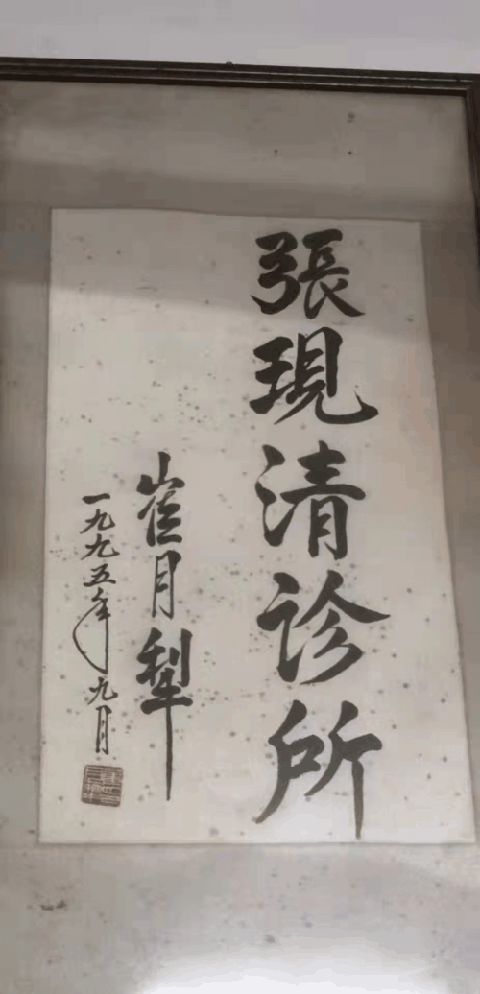 張現清诊所
崔月犁
一九九五年九月